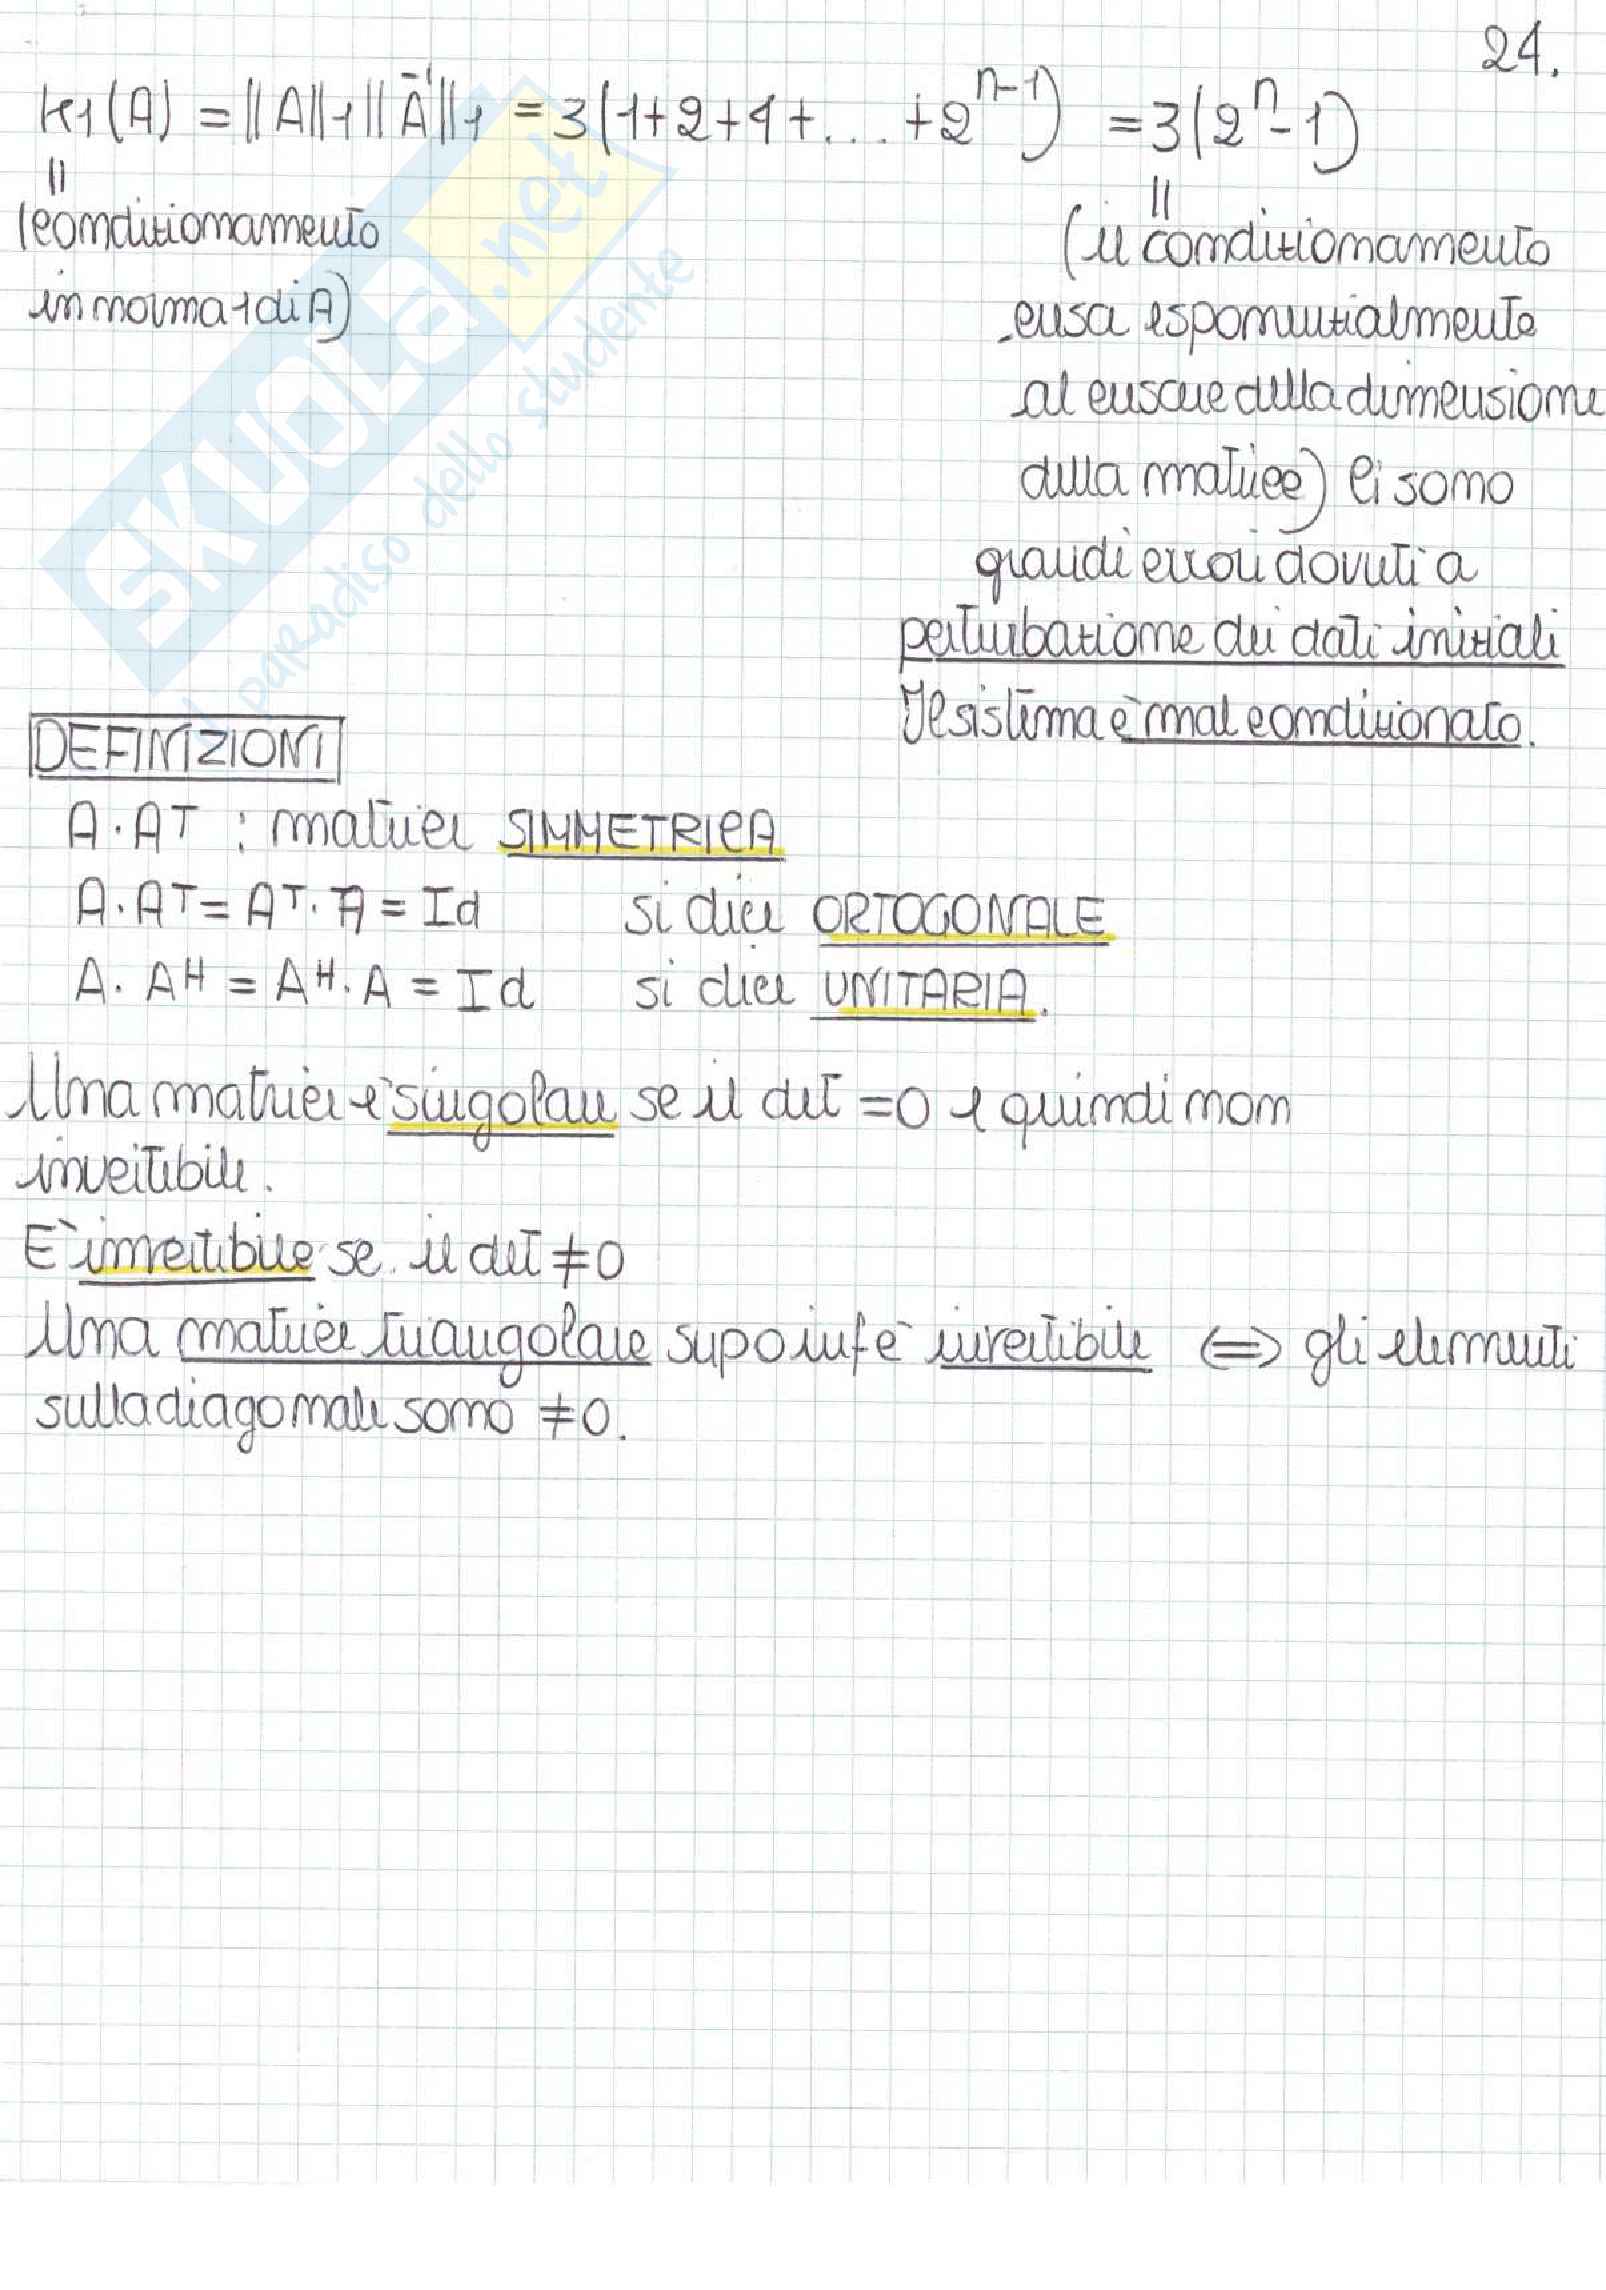 24.
K1(A) = ||A||1 ||A⁻¹||1 = 3(1+2+4+... +2ⁿ⁻¹) = 3(2ⁿ-1)
||
(condizionamento
in norma 1 di A)
||
(il condizionamento
cresce esponenzialmente
al crescere della dimensione
della matrice) Ci sono
grandi errori dovuti a
perturbazione dei dati iniziali
Il sistema è mal condizionato.
DEFINIZIONI
A·AT : matrice SIMMETRICA
A·AT = AT·A = Id si dice ORTOGONALE
A·AH = AH·A = Id si dice UNITARIA.
Una matrice è singolare se il det =0 e quindi non
invertibile.
E' invertibile se il det ≠0
Una matrice triangolare sup o inf è invertibile <=> gli elementi
sulla diagonale sono ≠0.
SKUOLA.net
il paradiso dello studente